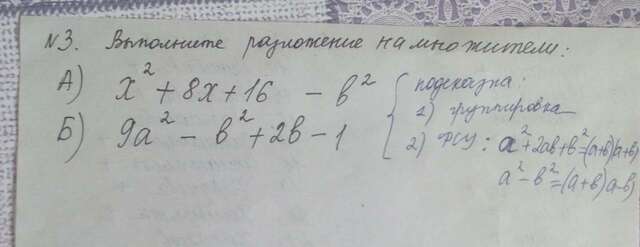 №3. Выполните разложение на множители:
А) x² + 8x + 16 - в²
Б) 9а² - в² + 2в - 1
подсказка:
1) группировка
2) ФСУ: а² + 2ав + в² = (а+в)(а+в)
а² - в² = (а+в)(а-в)